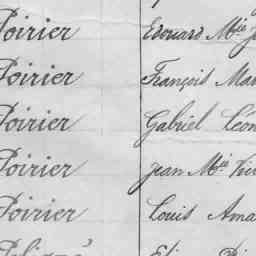 Poirier Edouard Mie J
Poirier François Mar
Poirier Gabriel Léon
Poirier Jean Mie Vic
Poirier Louis Ama